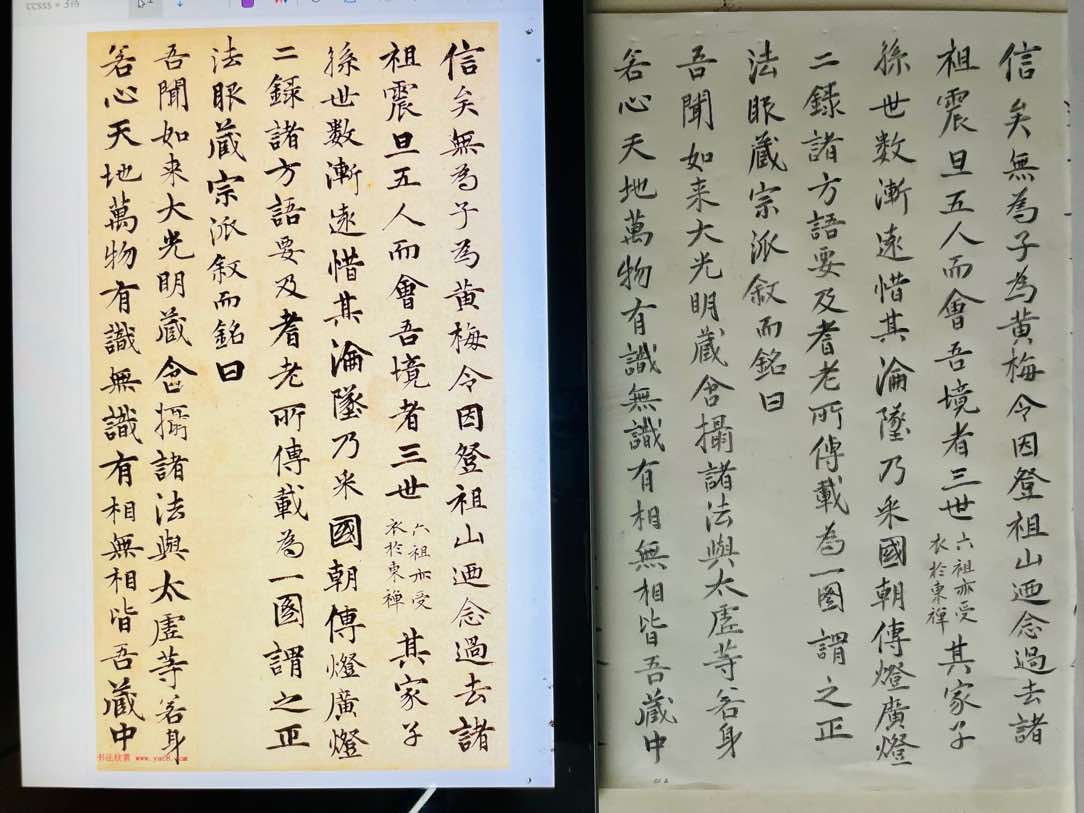 信矣無為子為黄梅令因登祖山迺念過去諸
祖震旦五人而會吾境者三世六祖亦受衣於東禪其家子
孫世数漸遠惜其淪墜乃采國朝傳燈廣燈
二録諸方語要及耆老所傳載為一圖謂之正
法眼藏宗派叙而銘曰
吾聞如来大光明藏含攝諸法與太虛等若身
若心天地萬物有識無識有相無相皆吾藏中
书法欣赏 www.yac8.com
信矣無為子為黄梅令因登祖山迺念過去諸
祖震旦五人而會吾境者三世六祖亦受衣於東禪其家子
孫世数漸遠惜其淪墜乃采國朝傳燈廣燈
二録諸方語要及耆老所傳載為一圖謂之正
法眼藏宗派叙而銘曰
吾聞如来大光明藏含攝諸法與太虛等若身
若心天地萬物有識無識有相無相皆吾藏中